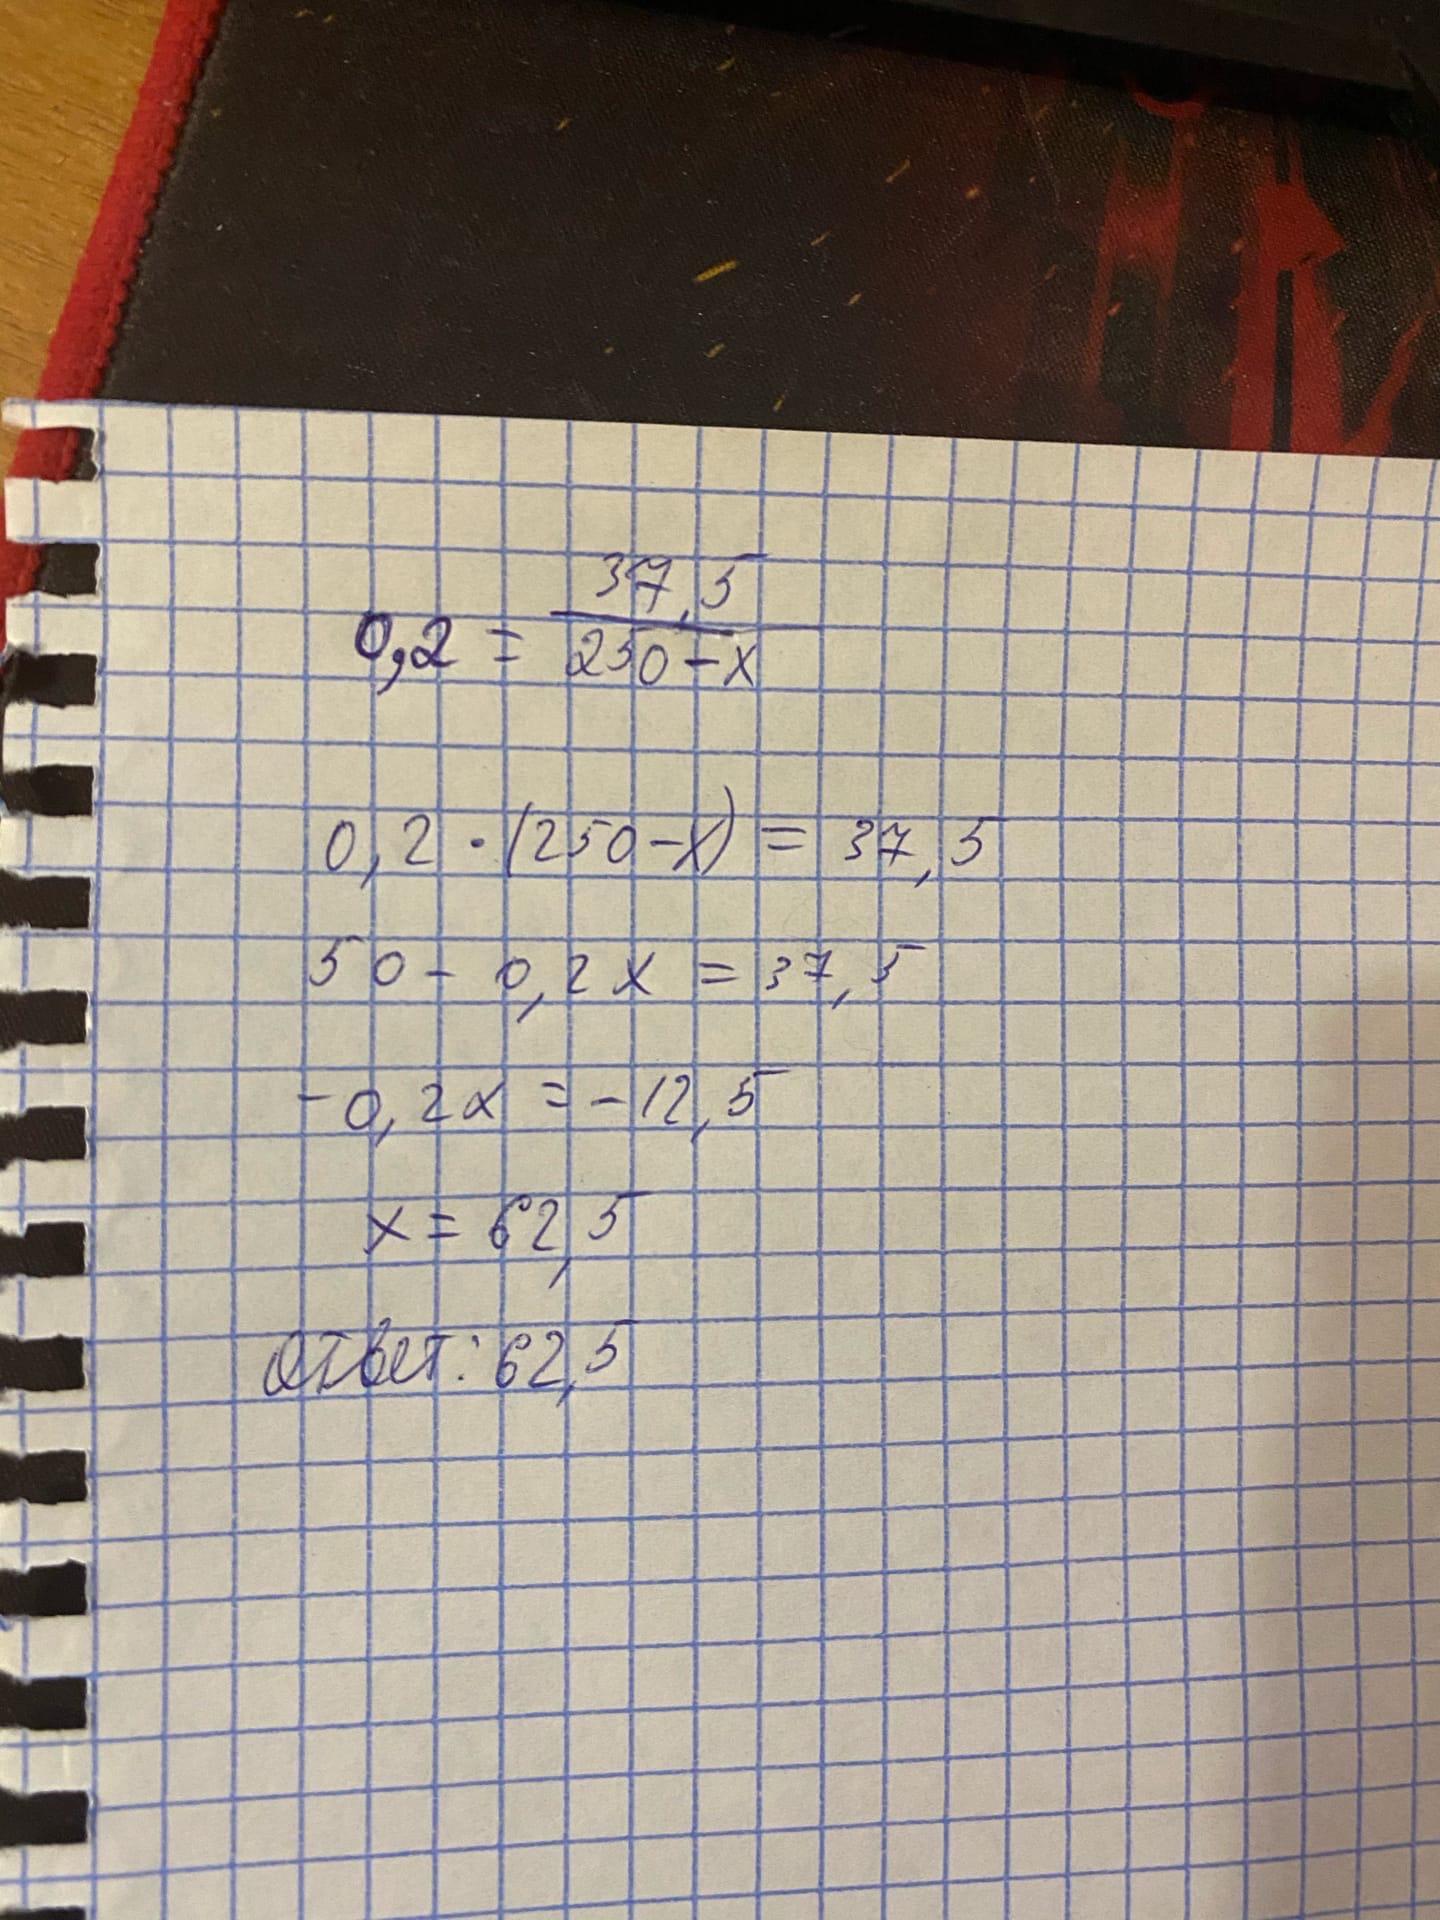 0,2 = 37,5 / 250 - x
0,2 · (250 - x) = 37,5
50 - 0,2x = 37,5
-0,2x = -12,5
x = 62,5
Ответ: 62,5